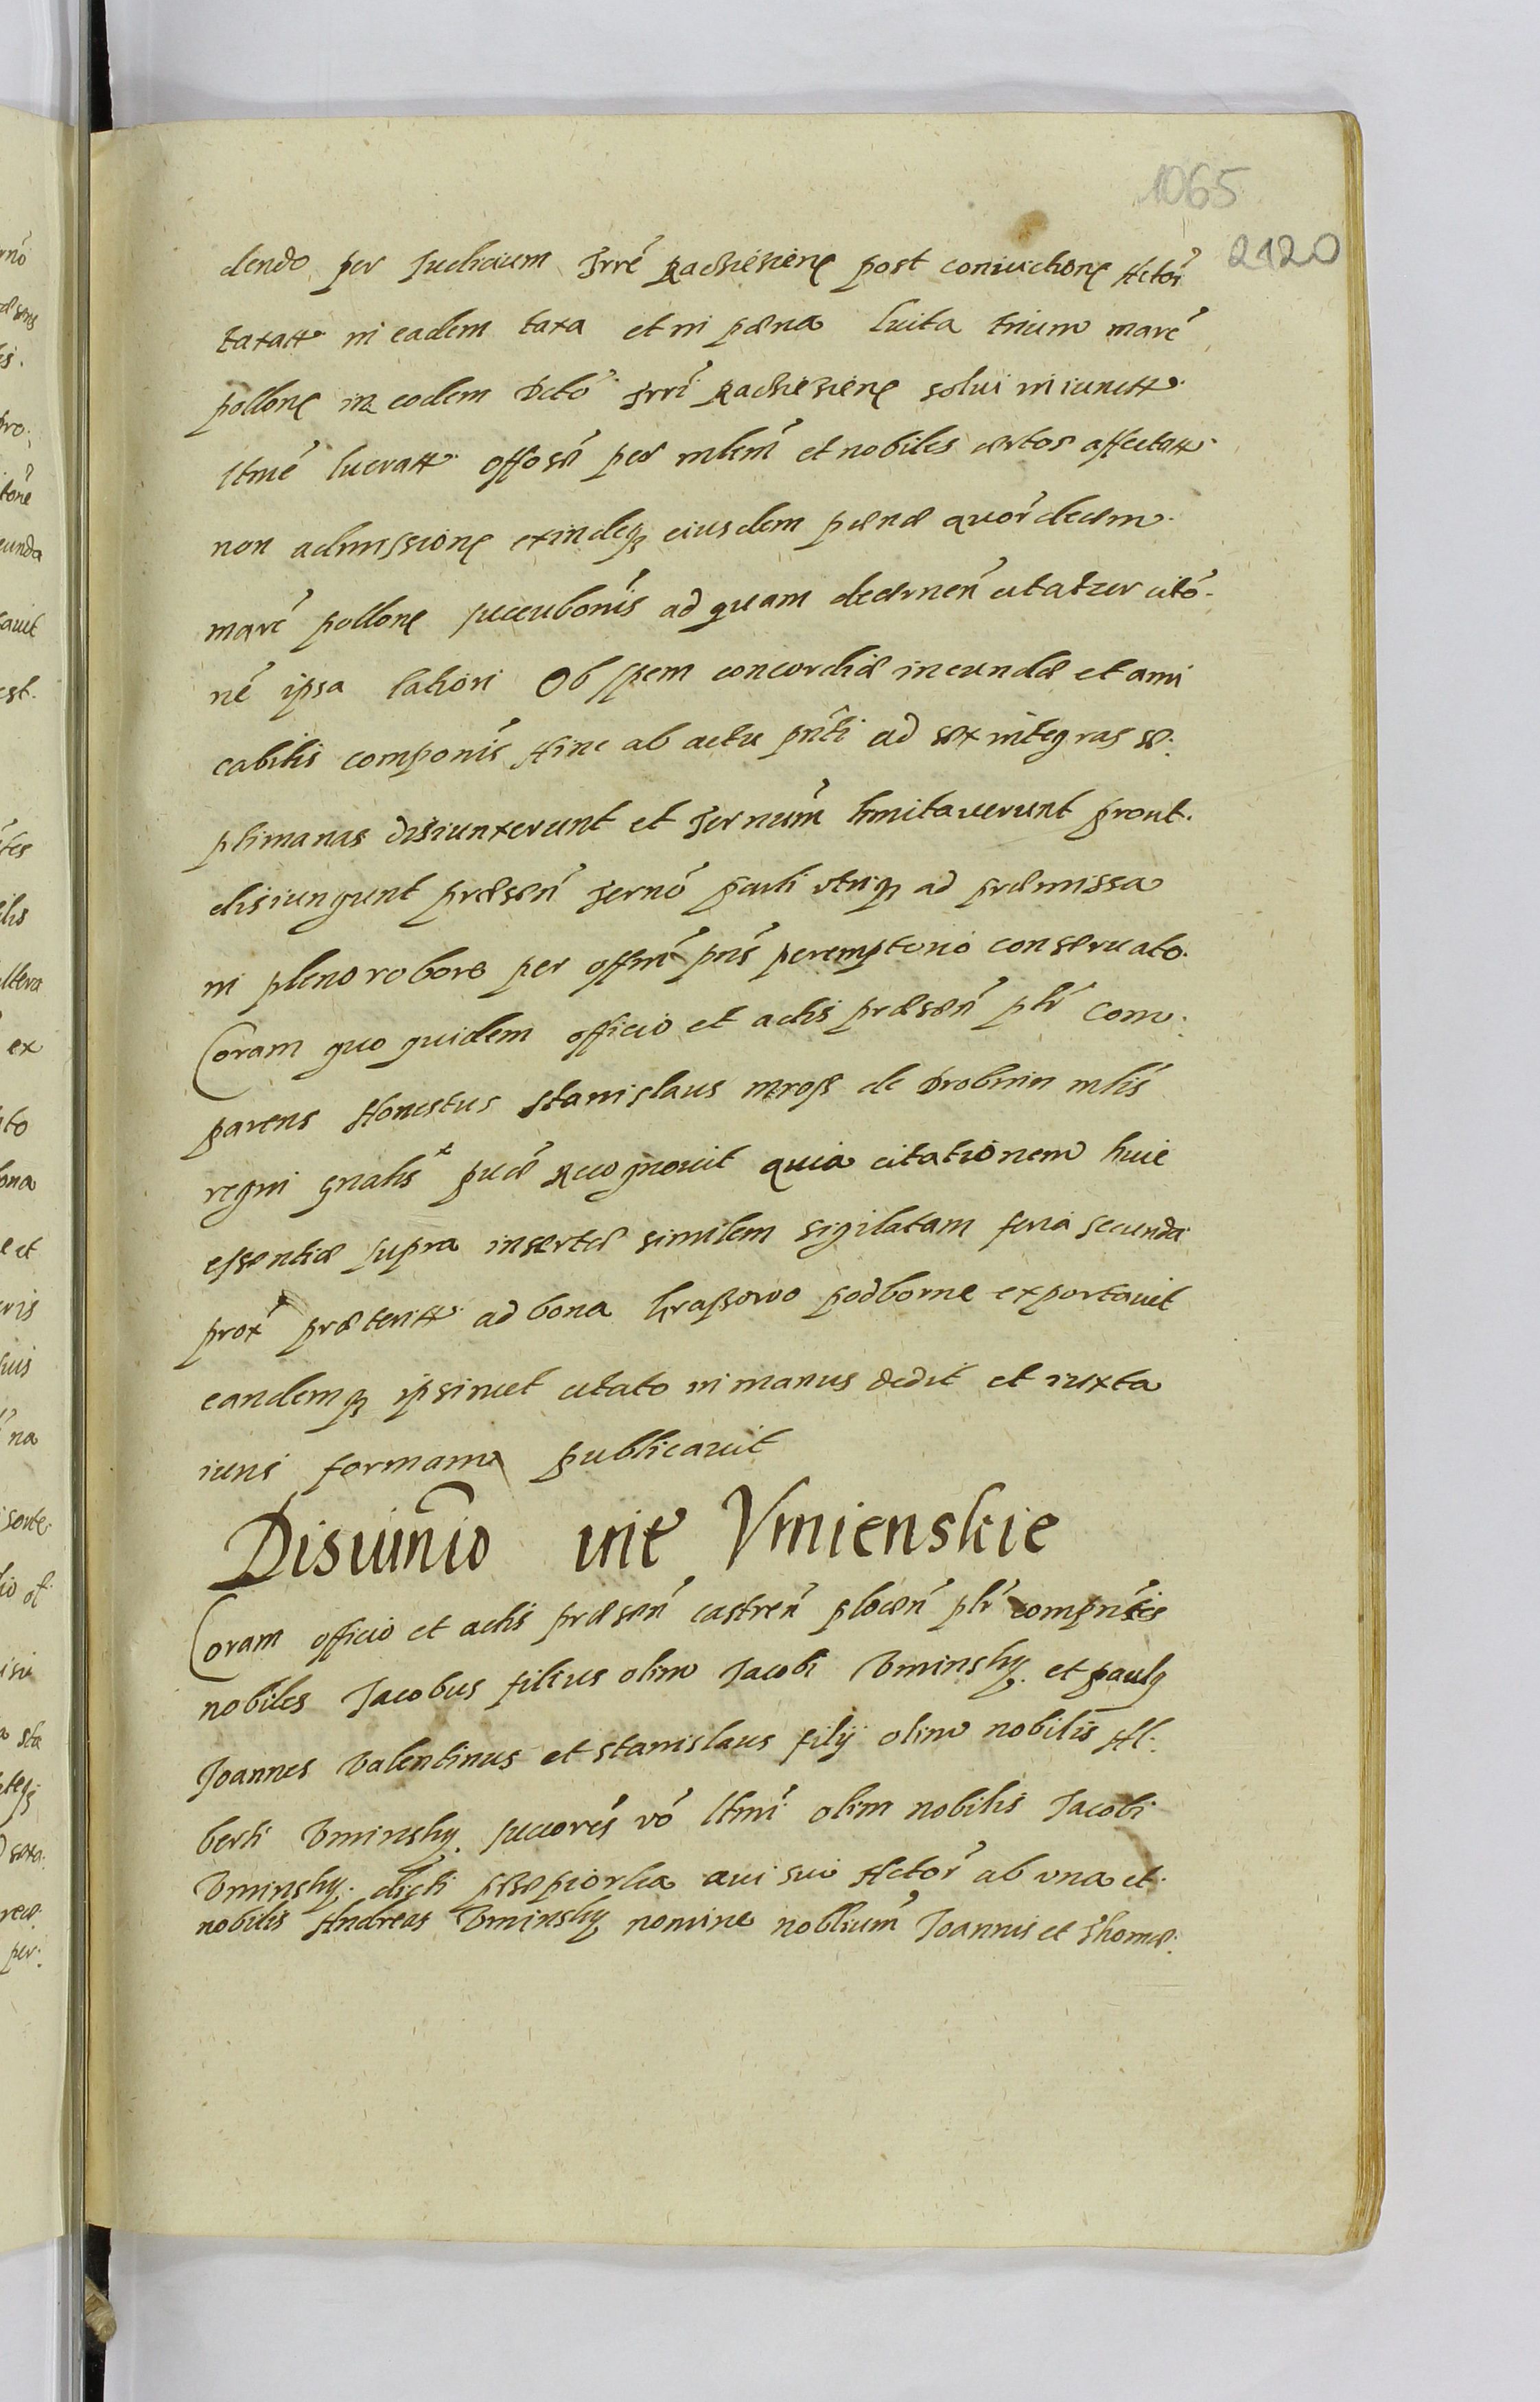 1065
2120
dendo per Judicium Trré Raczieziens post conuictione Actor
taxatt in eadem taxa et in pæna luita trium marc
pollone in eodem dcto Trri Raczieziens solui iniunctt.
ltme lucratt. offose per mlem et nobiles certos affectatt.
non admissione exindeq eiusdem pænæ quordecem.
marc pollone succubonis ad quam decernen citatzer citó-
né ipsa latiori Ob spem concordiæ ineundæ et ami
cabilis componis Hinc ab actu pnti ad sex integras se.
ptimanas disiunxerunt et Termum limitauerunt prout.
disiungunt præsen Termo parti utriq ad præmissa
in pleno robore per offm pns peremptorio conseruato.
Coram quo quidem officio et actis præsen plr Com.
parens Honestus Stanislaus mross de Drobnin mlis
regni gnalis pucæ recognouit quia citationem huic
essentiæ supra insertæ similem sigilatam feria secunda
prox præteritt ad bona Krassowo podborne exportauit
eandemq ipsimet citato in manus dedit et iuxta
iuris formam publicauit
Disiunio int Vmienskie
Coram officio et actis præsen castren plocen plr compntes
nobiles Jacobus filius olim Jacobi Vminsky. et paulq
Joannes Valentinus et Stanislaus filij olim nobilis Al.
berti Vminsky. succores vó ltmi olim nobilis Jacobi
Vminsky. dicti psepiorka aui sui Actor ab una et.
nobilis Andreas Vminsky nomine nobliium Joannis et Thomæ.